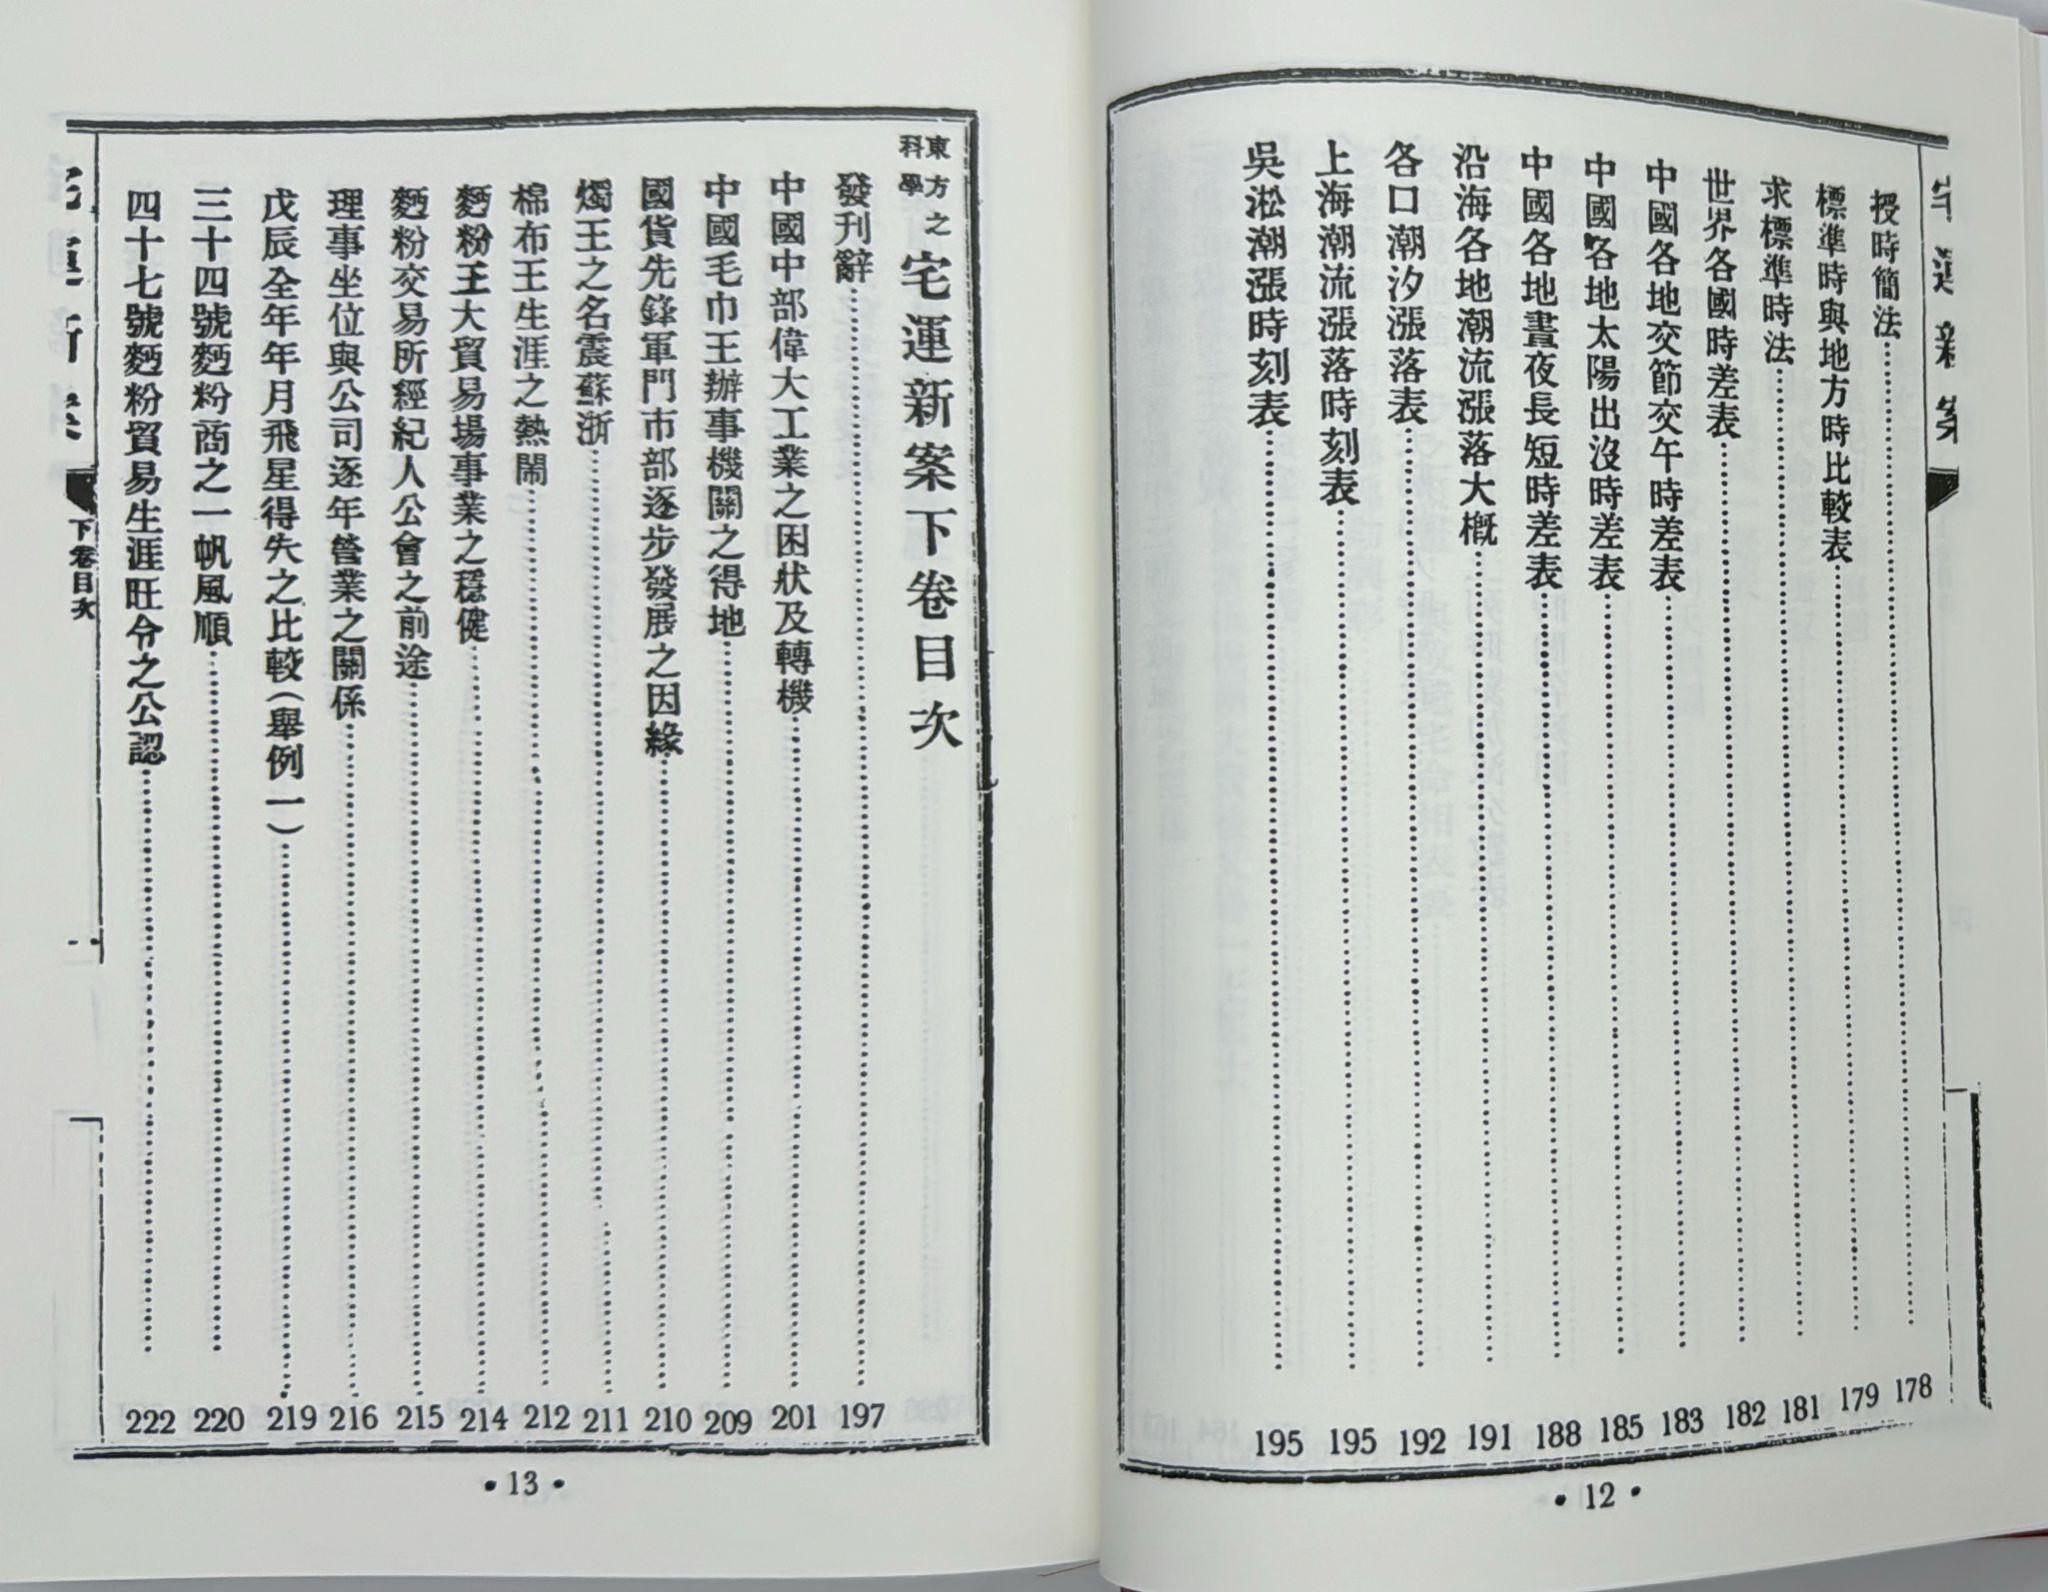 授時簡法 178
標準時與地方時比較表 179
求標準時法 181
世界各國時差表 182
中國各地交節交午時差表 183
中國各地太陽出沒時差表 185
中國各地晝夜長短時差表 188
沿海各地潮流漲落大概 191
各口潮汐漲落表 192
上海潮流漲落時刻表 195
吳淞潮漲時刻表 195
·12·
東方之科學 宅運新案下卷目次
發刊辭 197
中國中部偉大工業之困狀及轉機 201
中國毛巾王辦事機關之得地 209
國貨先鋒軍門市部逐步發展之因緣 210
燭王之名震蘇浙 211
棉布王生涯之熱鬧 212
麪粉王大貿易場事業之穩健 214
麪粉交易所經紀人公會之前途 215
理事坐位與公司逐年營業之關係 216
戊辰全年年月飛星得失之比較(舉例一) 219
三十四號麪粉商之一帆風順 220
四十七號麪粉貿易生涯旺令之公認 222
下卷目次
·13·